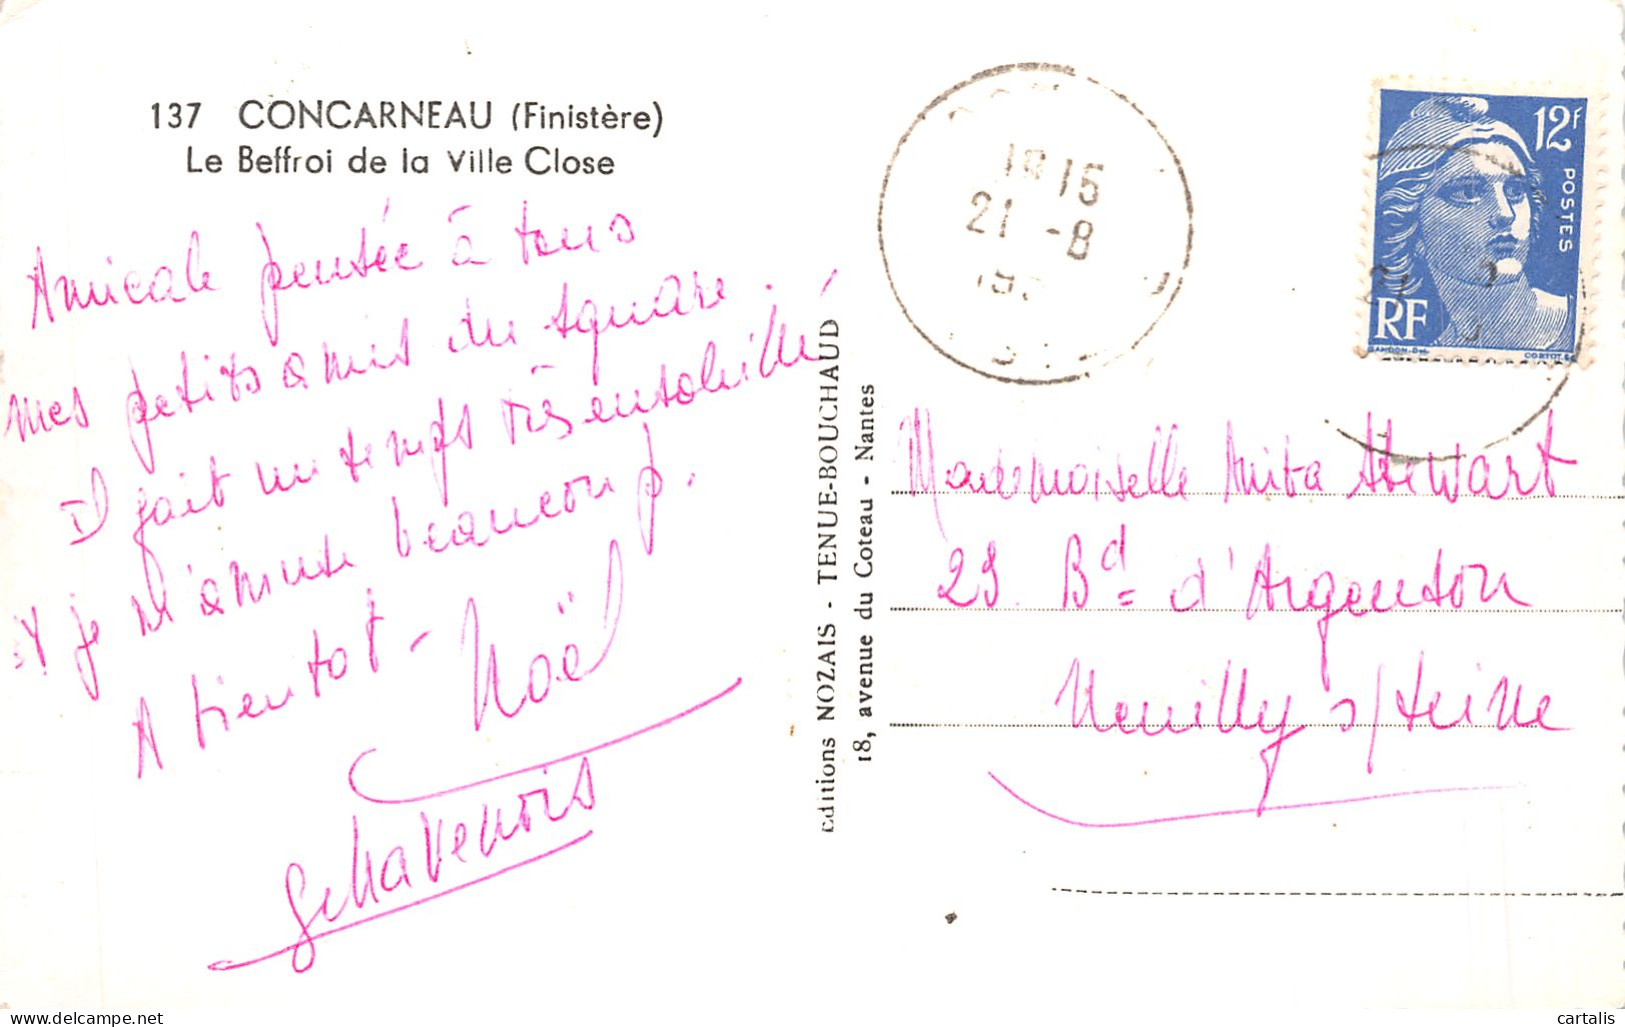 137 CONCARNEAU (Finistère)
Le Beffroi de la Ville Close
Amicale pensée à tous
mes petits amis du square.
Il fait un temps très ensoleillé
et je m'amuse beaucoup.
A bientot - Noël
Editions NOZAIS - TENUE-BOUCHAUD
18, avenue du Coteau - Nantes
15
21 -8
12F
POSTES
RF
GANDON
CORTOT
Mademoiselle Anita Stewart
29 Bd d'Argenson
Neuilly s/ Seine
cartalis.delcampe.net
cartalis